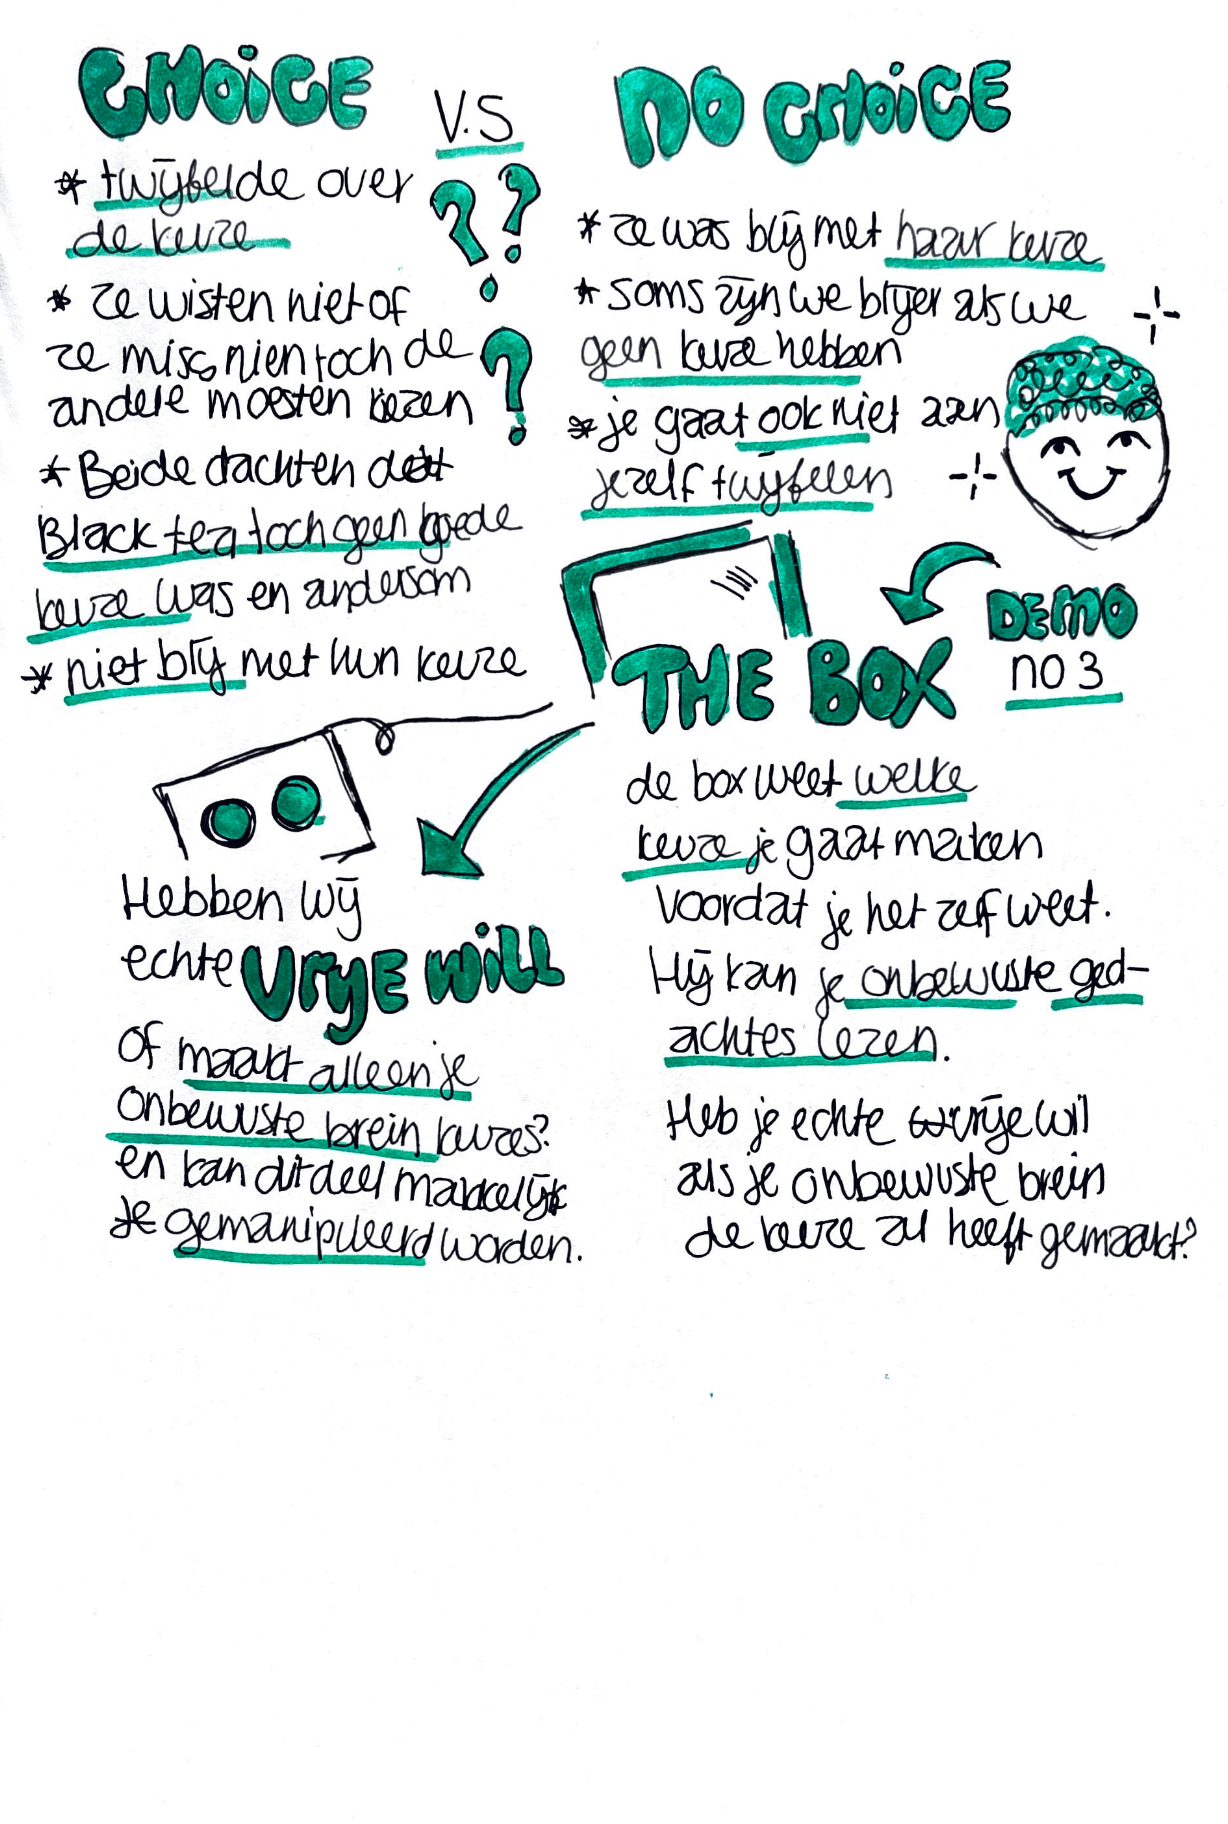 CHOICE
V.S
NO CHOICE
* twijfelde over
de keuze
* ze wisten niet of
ze misschien toch de
andere moesten kiezen
* Beide dachten dat
Black tea toch geen goede
keuze was en andersom
* niet blij met hun keuze
* ze was blij met haar keuze
* soms zijn we blijer als we
geen keuze hebben
* je gaat ook niet aan
jezelf twijfelen
DEMO
no 3
THE BOX
de box weet welke
keuze je gaat maken
voordat je het zelf weet.
Hij kan je onbewuste ged-
achtes lezen.
Heb je echte vrije wil
als je onbewuste brein
de keuze al heeft gemaakt?
Hebben wij
echte VRIJE WILL
of maakt alleen je
onbewuste brein keuzes?
en kan dit deel makkelijk
gemanipuleerd worden.